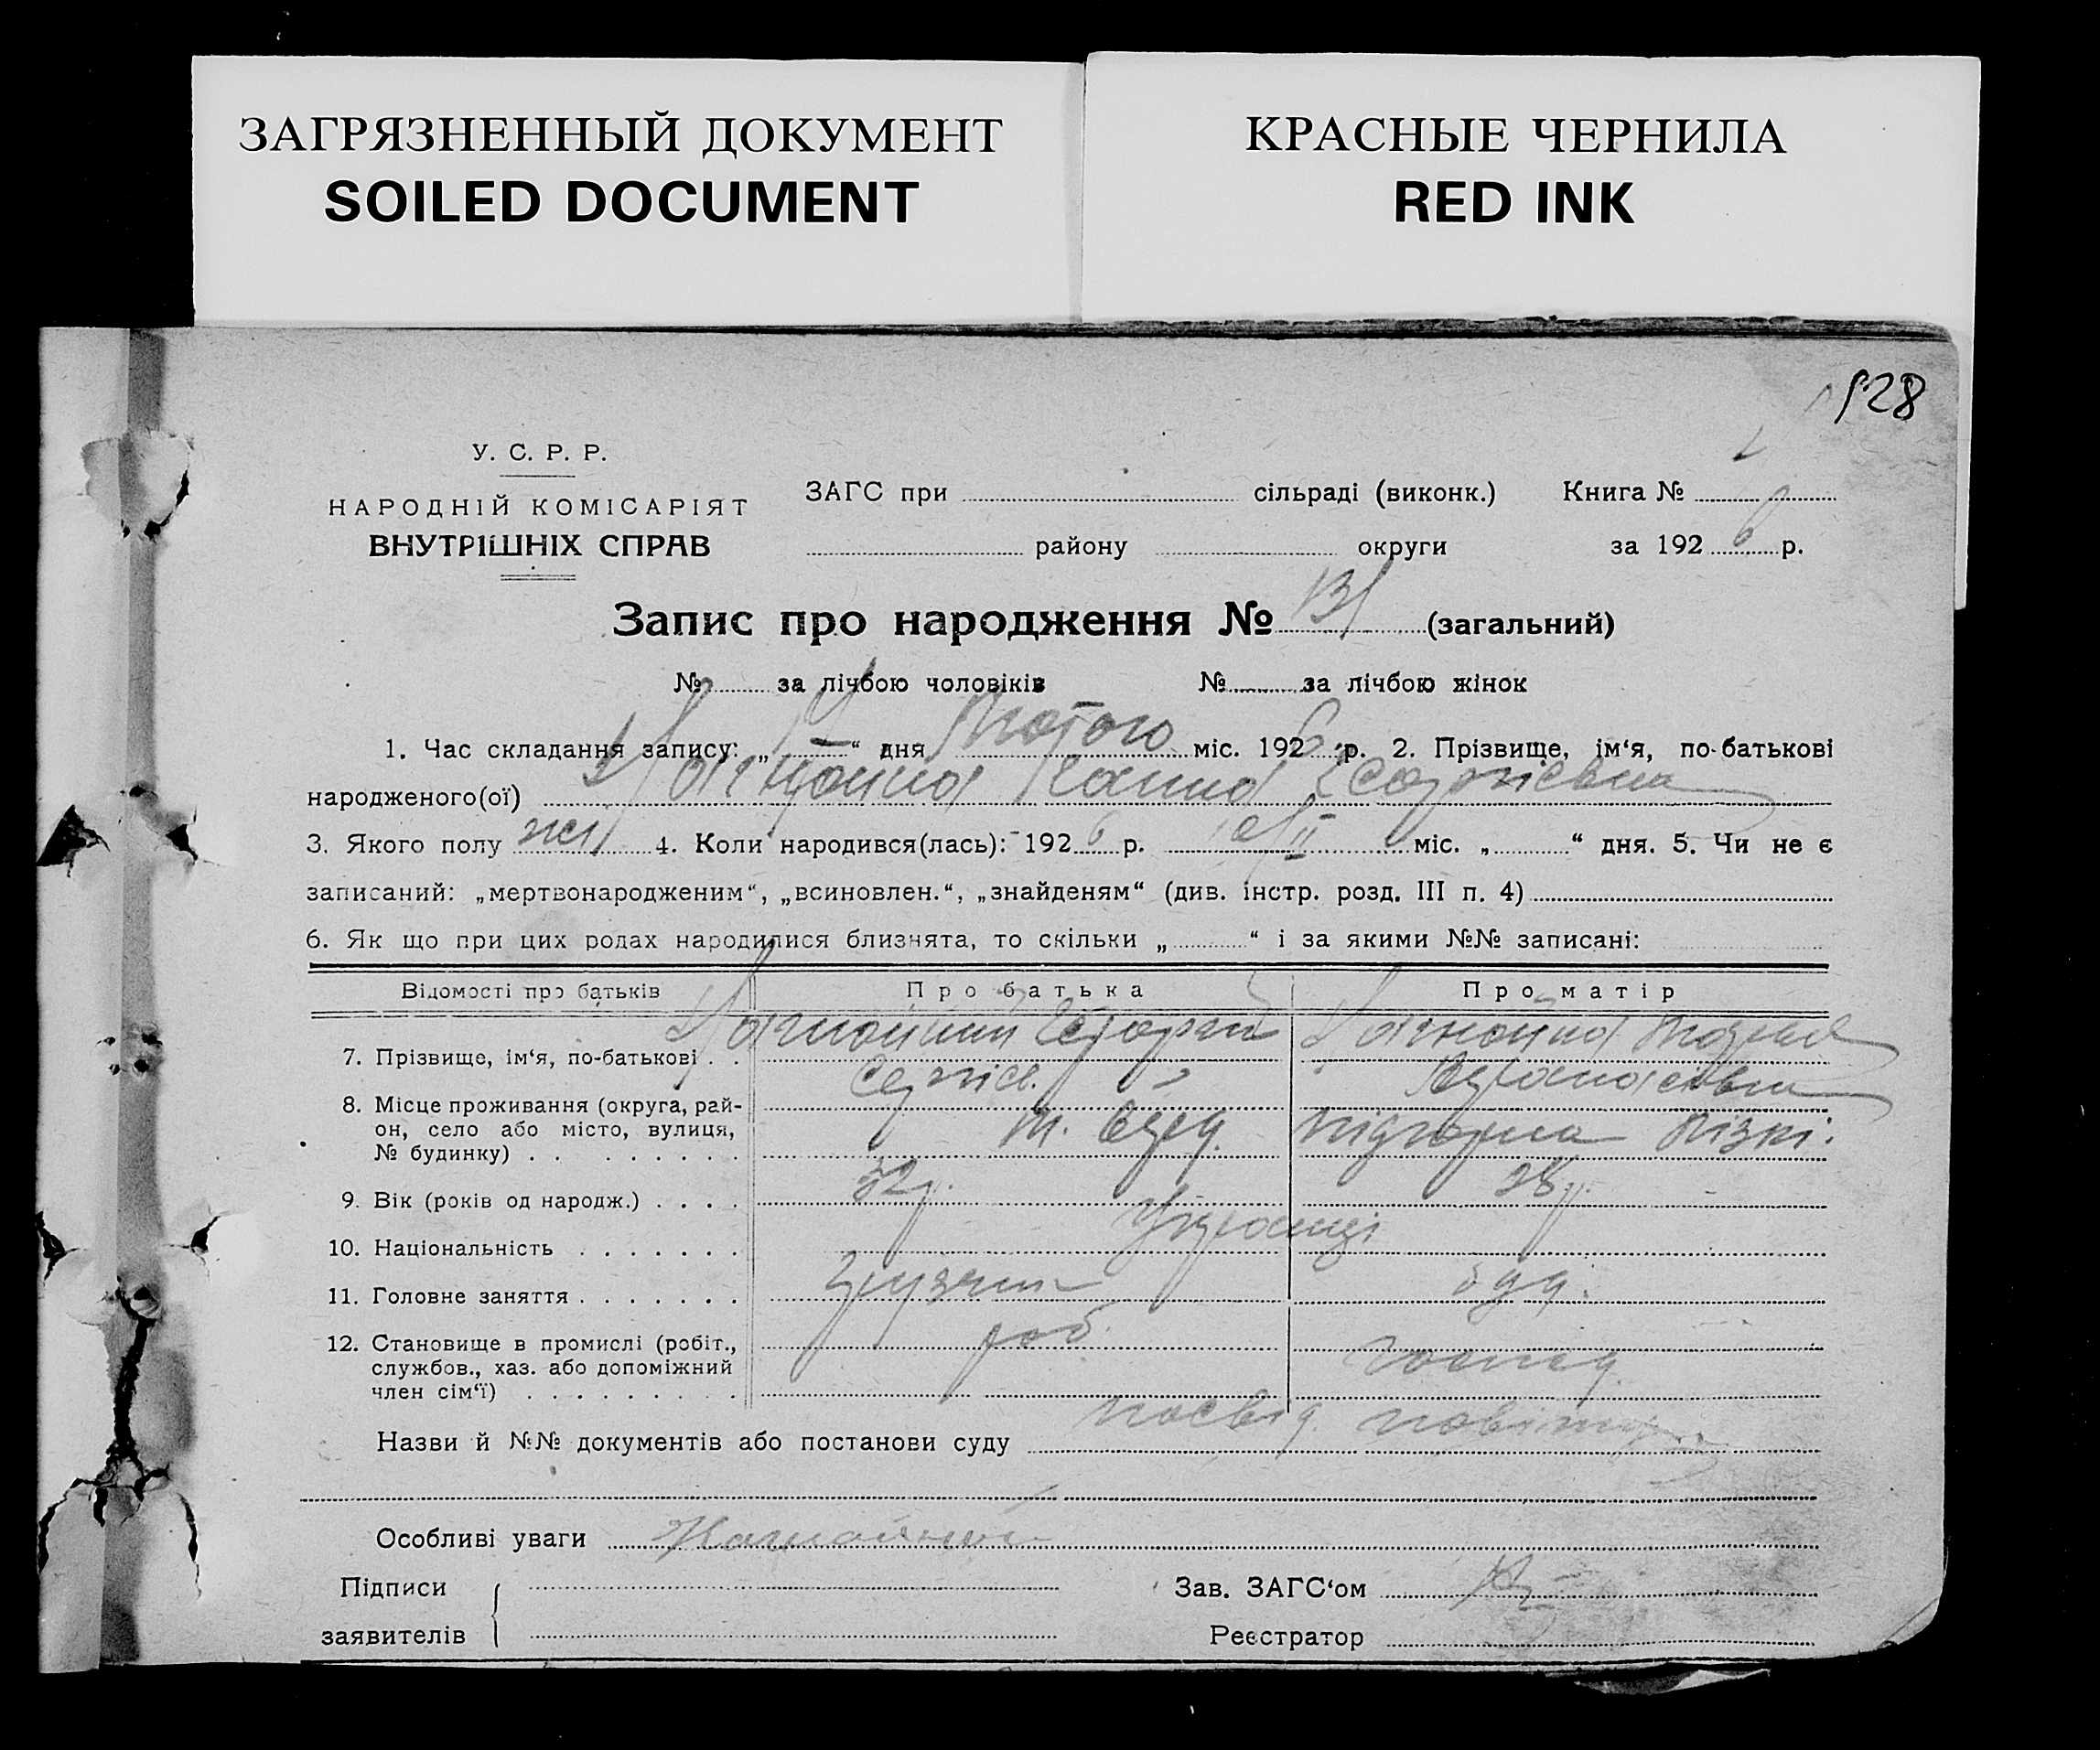 ЗАГРЯЗНЕННЫЙ ДОКУМЕНТ
SOILED DOCUMENT
КРАСНЫЕ ЧЕРНИЛА
RED INK
128
У. С. Р. Р.
НАРОДНІЙ КОМІСАРІЯТ
ВНУТРІШНІХ СПРАВ
ЗАГС при сільраді (виконк.) Книга №
району округи за 1926 р.
Запис про народження № 131 (загальний)
№ за лічбою чоловіків № за лічбою жінок
1. Час складання запису: „ “ дня Лютого міс. 1926 р. 2. Прізвище, ім‘я, по-батькові
народженого(ої) Ганна
3. Якого полу жін 4. Коли народився(лась): 1926 р. міс. „ “ дня. 5. Чи не є
записаний: „мертвонародженим“, „всиновлен.“, „знайденям“ (див. інстр. розд. III п. 4)
6. Як що при цих родах народилися близнята, то скільки „ “ і за якими №№ записані:
Відомості про батьків Про батька Про матір
7. Прізвище, ім‘я, по-батькові . .
8. Місце проживання (округа, рай-
он, село або місто, вулиця,
№ будинку) . . . . . . . . .
9. Вік (років од народж.) . . . . 32 р. 28 р.
10. Національність . . . . . . . Українці
11. Головне заняття . . . . . . .
12. Становище в промислі (робіт., роб.
службов., хаз. або допоміжний
член сім‘ї) . . . . . . . . .
Назви й №№ документів або постанови суду посвід.
Особливі уваги
Підписи
заявителів
Зав. ЗАГС‘ом
Реєстратор